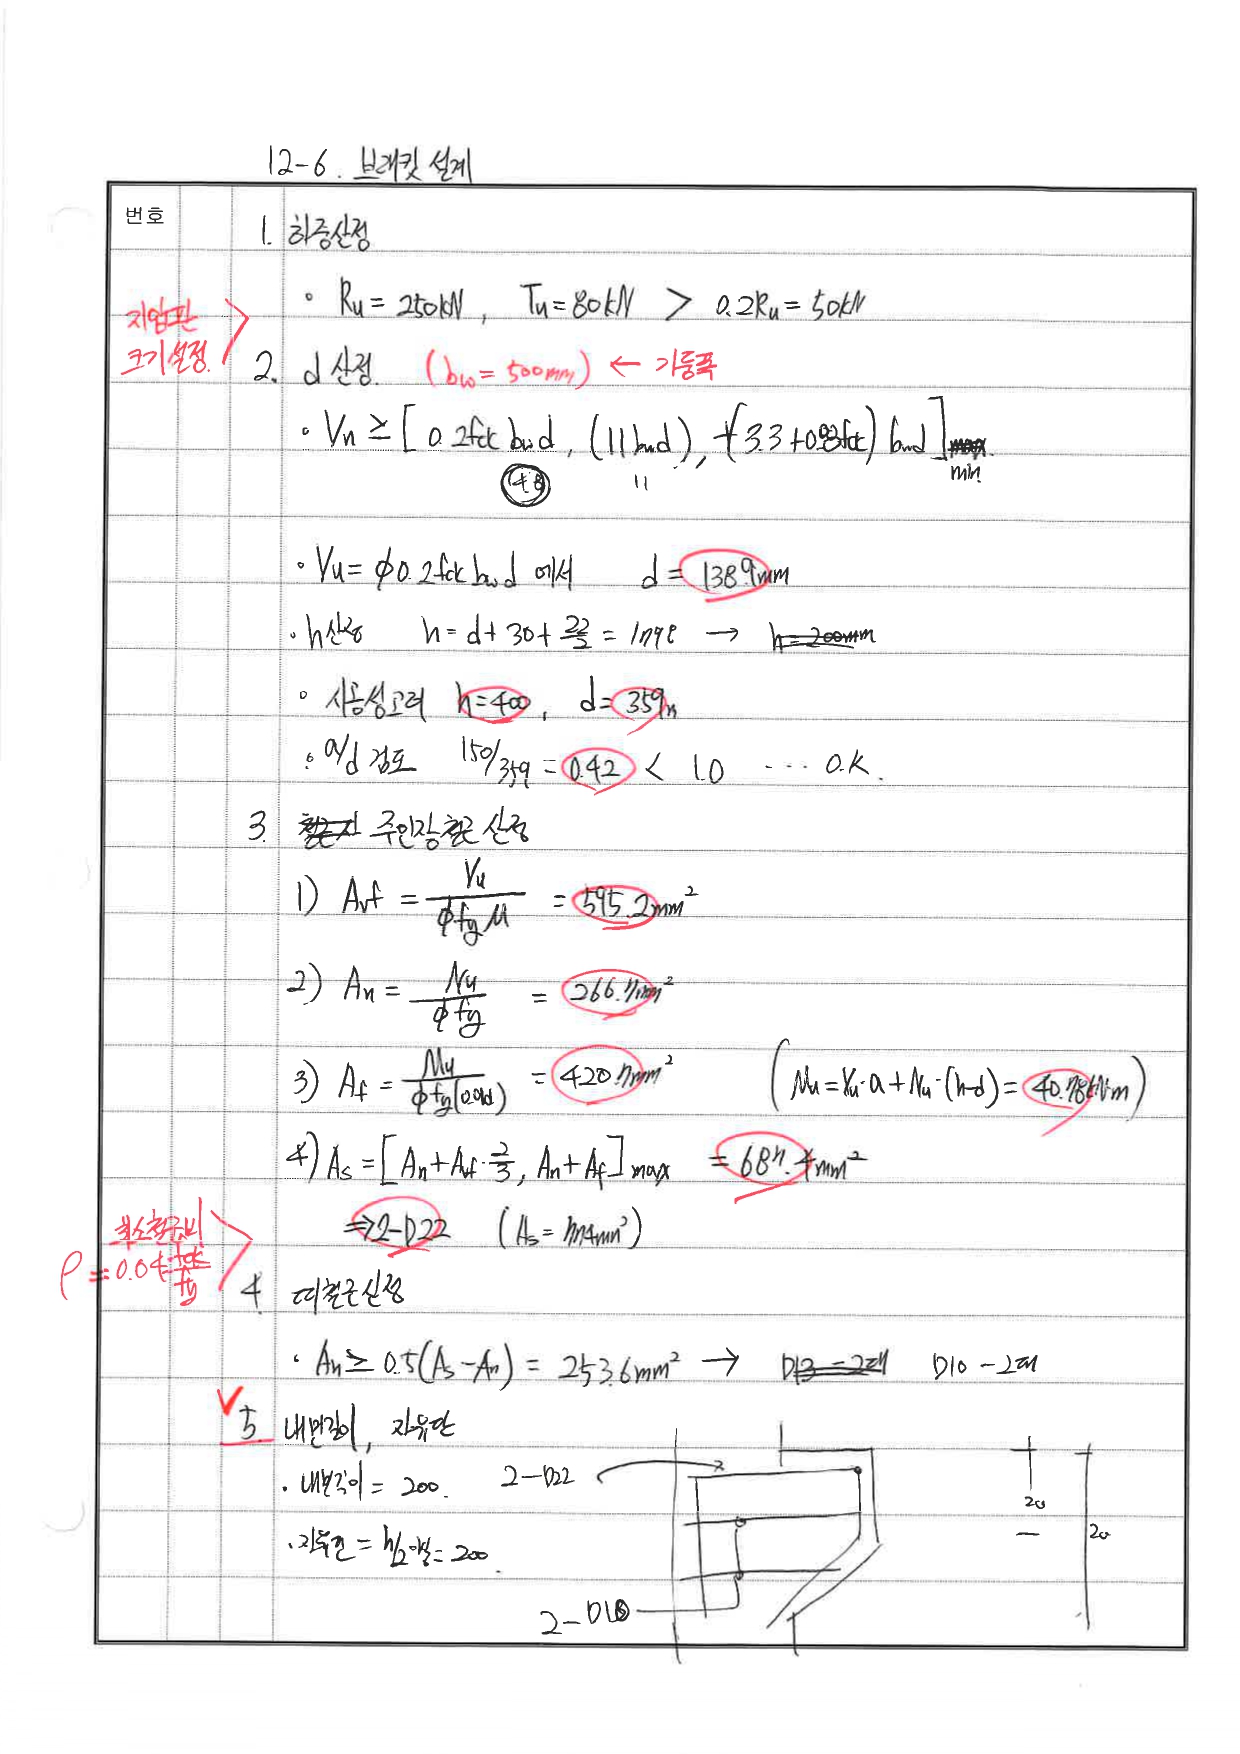 12-6. 브래킷 설계
번호
1. 하중산정
◦ Ru = 250kN, Tu = 80kN > 0.2Ru = 50kN
지압판
크기설정
2. d 산정. (bw = 500mm) ← 기둥폭
• Vn ≥ [0.2fck bwd, (11bwd), (3.3+0.08fck) bwd] min
4.8 11
• Vu = ϕ0.2fck bwd 에서 d = 138.9mm
• h산정 h = d+30+22/2 = 179.9 → h=200mm
◦ 사용성고려 h=400, d=359
• a/d 검토 150/359 = 0.42 < 1.0 ··· O.K.
3. 주인장철근 산정
1) Avf = Vu/ϕfyμ = 595.2mm²
2) An = Nu/ϕfy = 266.7mm²
3) Af = Mu/ϕfy(0.9d) = 420.7mm² (Mu = Vu·a + Nu·(h-d) = 40.78kN·m)
4) As = [An+Avf·2/3, An+Af]max = 687.4mm²
⇒ 2-D22 (As = 774mm²)
최소철근비
ρ = 0.04 fck/fy
4. 띠철근산정
• An ≥ 0.5(As-An) = 253.6mm² → D13-2대 D10-2대
V
5. 내면길이, 자유단
• 내면길이 = 200.
2-D22
20
20
• 자유단 = h/2 이상 = 200.
2-D10